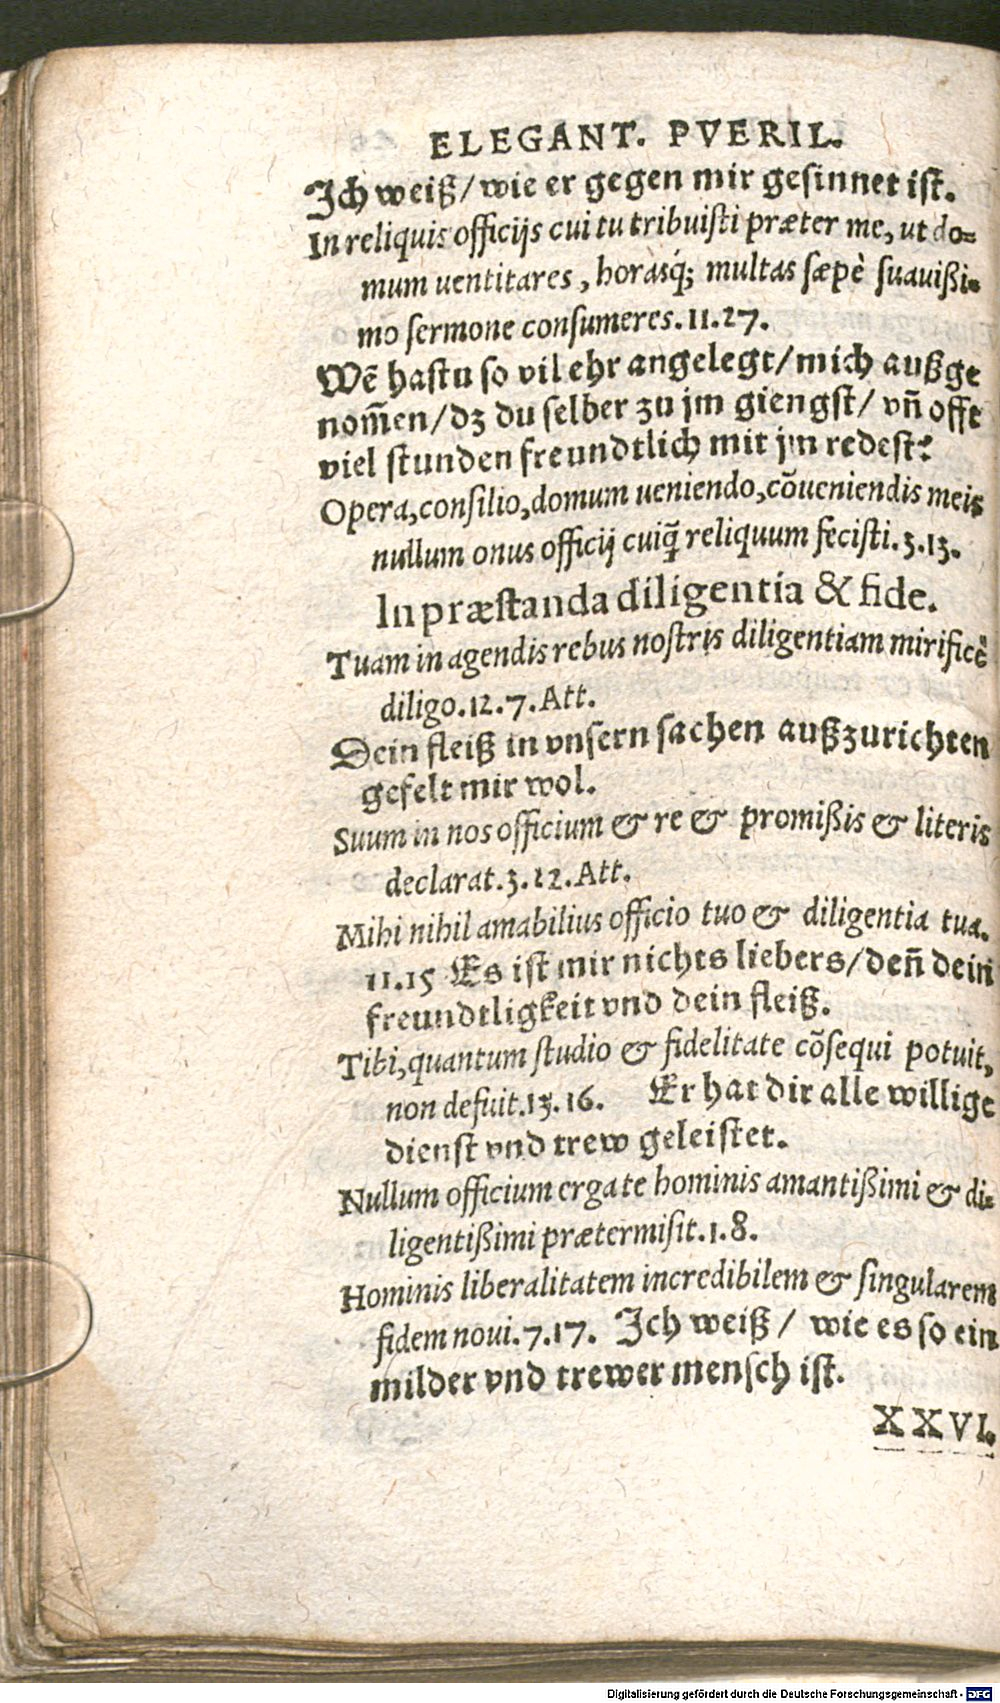 ELEGANT. PVERIL.
Ich weiß/ wie er gegen mir gesinnet ist.
In reliquis officijs cui tu tribuisti præter me, ut do=
mum uentitares, horasq́; multas sæpè suauißi-
mo sermone consumeres. 11. 27.
Wē hastu so vil ehr angelegt/ mich außge
nom̄en/ dz du selber zu jm giengst/ vn̄ offt
viel stunden freundtlich mit jm redest?
Opera, consilio, domum ueniendo, cōueniendis meis
nullum onus officij cuiq̄ reliquum fecisti. 3. 13.
In præstanda diligentia & fide.
Tuam in agendis rebus nostris diligentiam mirificè
diligo. 12. 7. Att.
Dein fleiß in vnsern sachen außzurichten
gefelt mir wol.
Suum in nos officium & re & promißis & literis
declarat. 3. 12. Att.
Mihi nihil amabilius officio tuo & diligentia tua.
11. 15 Es ist mir nichts liebers/ den̄ dein
freundtligkeit vnd dein fleiß.
Tibi, quantum studio & fidelitate cōsequi potuit,
non defuit. 13. 16. Er hat dir alle willige
dienst vnd trew geleistet.
Nullum officium ergate hominis amantißimi & di-
ligentißimi prætermisit. 1. 8.
Hominis liberalitatem incredibilem & singularem
fidem noui. 7. 17. Ich weiß/ wie es so ein
milder vnd trewer mensch ist.
XXVI.
Digitalisierung gefördert durch die Deutsche Forschungsgemeinschaft - DFG